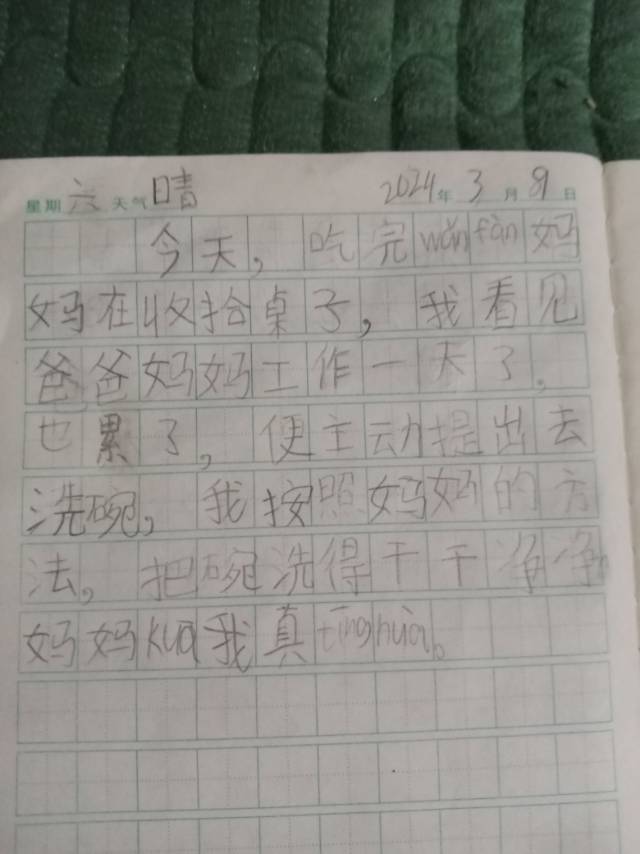 星期 六 天气 晴 2024年 3 月 9 日
今天，吃完wǎnfàn妈
妈在收拾桌子，我看见
爸爸妈妈工作一天了，
也累了，便主动提出去
洗碗，我按照妈妈的方
法，把碗洗得干干净净，
妈妈kuā我真tīnghuà。